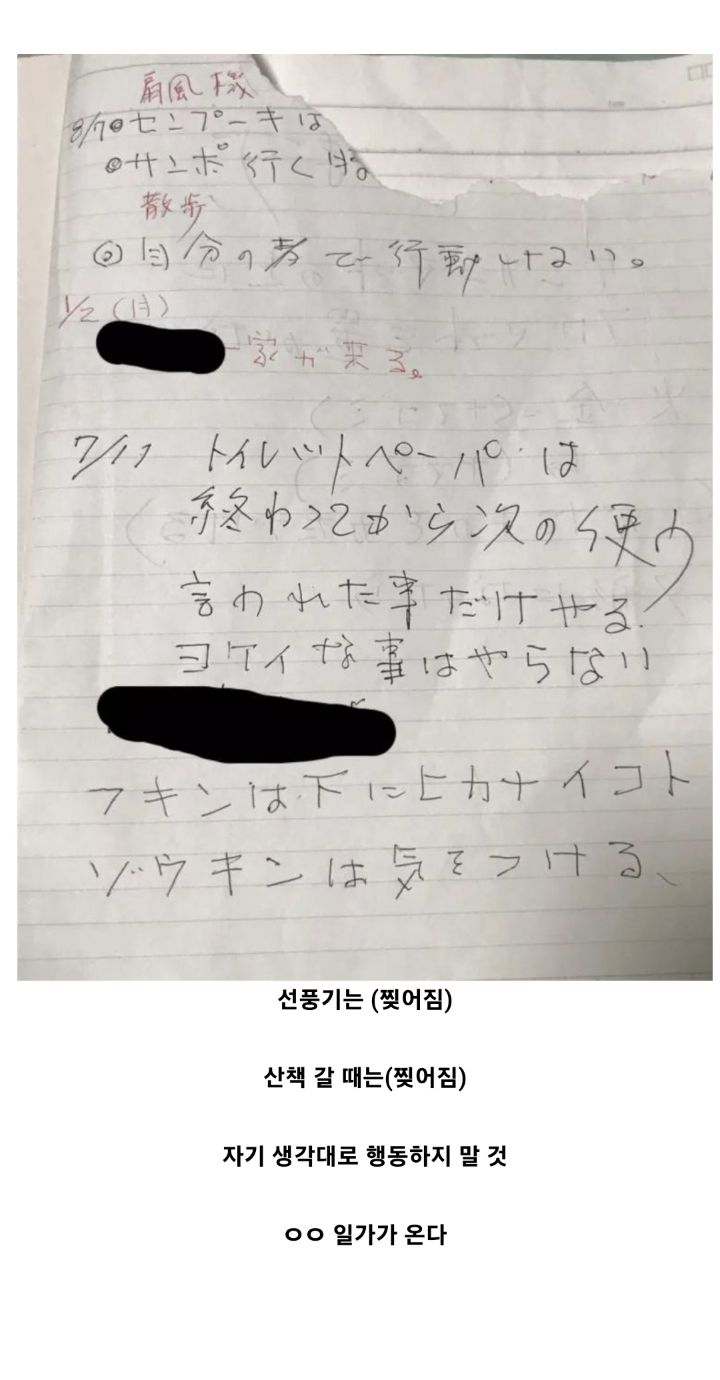 扇風機
8/7◎センプーキは
◎サンポ行く時
散歩
◎自分の考で行動しない。
1/2(月)
一家が来る。
7/11 トイレットペーパーは
終わってから次の使う
言われた事だけやる.
ヨケイな事はやらない
フキンは下にヒカナイコト
ゾウキンは気をつける、
선풍기는 (찢어짐)
산책 갈 때는(찢어짐)
자기 생각대로 행동하지 말 것
ㅇㅇ 일가가 온다